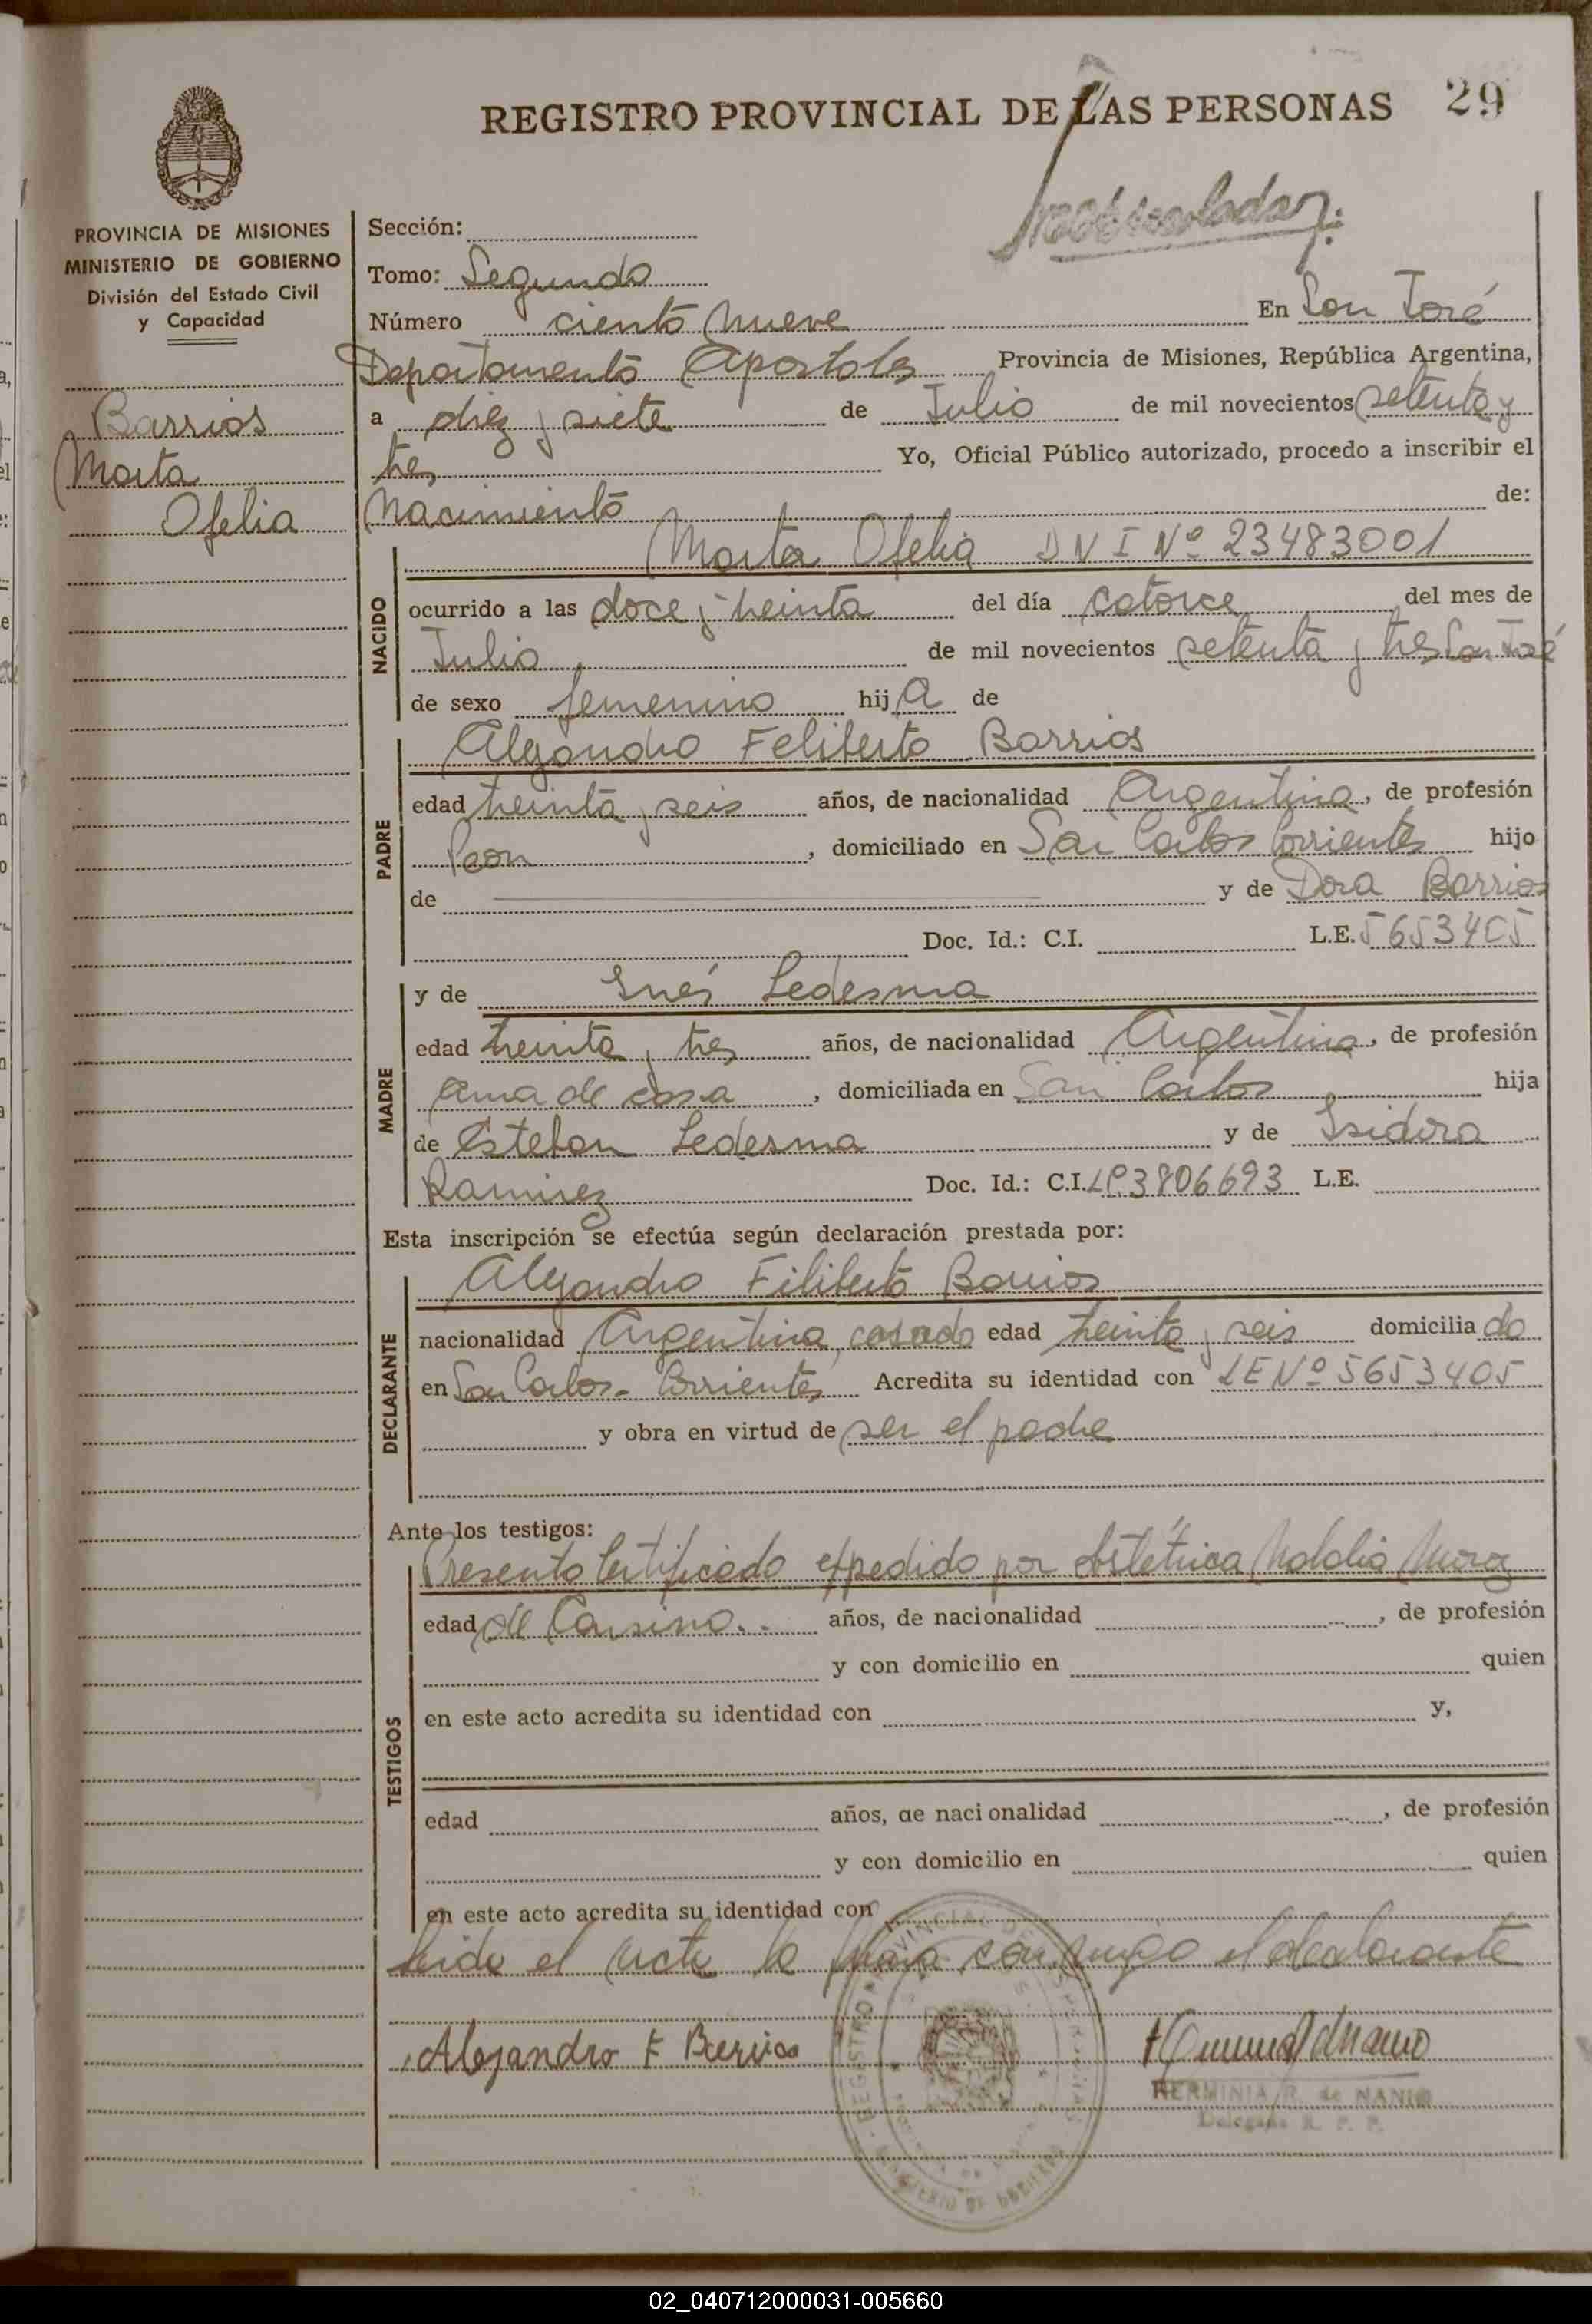 REGISTRO PROVINCIAL DE LAS PERSONAS 29
Matriculada
PROVINCIA DE MISIONES
MINISTERIO DE GOBIERNO
División del Estado Civil
y Capacidad
Barrios
Marta
Ofelia
Sección:
Tomo: Segundo
Número ciento nueve En San José
Departamento Apostoles Provincia de Misiones, República Argentina,
a diez y siete de Julio de mil novecientos setenta y
tres Yo, Oficial Público autorizado, procedo a inscribir el
Nacimiento de:
NACIDO
Marta Ofelia DNI Nº 23483001
ocurrido a las doce y treinta del día catorce del mes de
Julio de mil novecientos setenta y tres San José
de sexo femenino hija de
PADRE
Alejandro Feliberto Barrios
edad treinta y seis años, de nacionalidad Argentina, de profesión
Peon, domiciliado en San Carlos Corrientes hijo
de y de Dora Barrios
Doc. Id.: C.I. L.E. 5653405
MADRE
y de Inés Ledesma
edad treinta y tres años, de nacionalidad Argentina, de profesión
ama de casa, domiciliada en San Carlos hija
de Esteban Ledesma y de Isidora
Ramirez Doc. Id.: C.I. LC 3806693 L.E.
Esta inscripción se efectúa según declaración prestada por:
DECLARANTE
Alejandro Filiberto Barrios
nacionalidad Argentina, casado edad treinta y seis domiciliado
en San Carlos - Corrientes Acredita su identidad con LE Nº 5653405
y obra en virtud de ser el padre
Ante los testigos:
TESTIGOS
Presenta Certificado expedido por Obstétrica Natalia
edad de años, de nacionalidad , de profesión
y con domicilio en quien
en este acto acredita su identidad con y,
edad años, de nacionalidad , de profesión
y con domicilio en quien
en este acto acredita su identidad con
Leida el Acta la firma conmigo el declarante
Alejandro F Barrios
HERMINIA R. de NANIO
Delegada R. P. P.
02_040712000031-005660